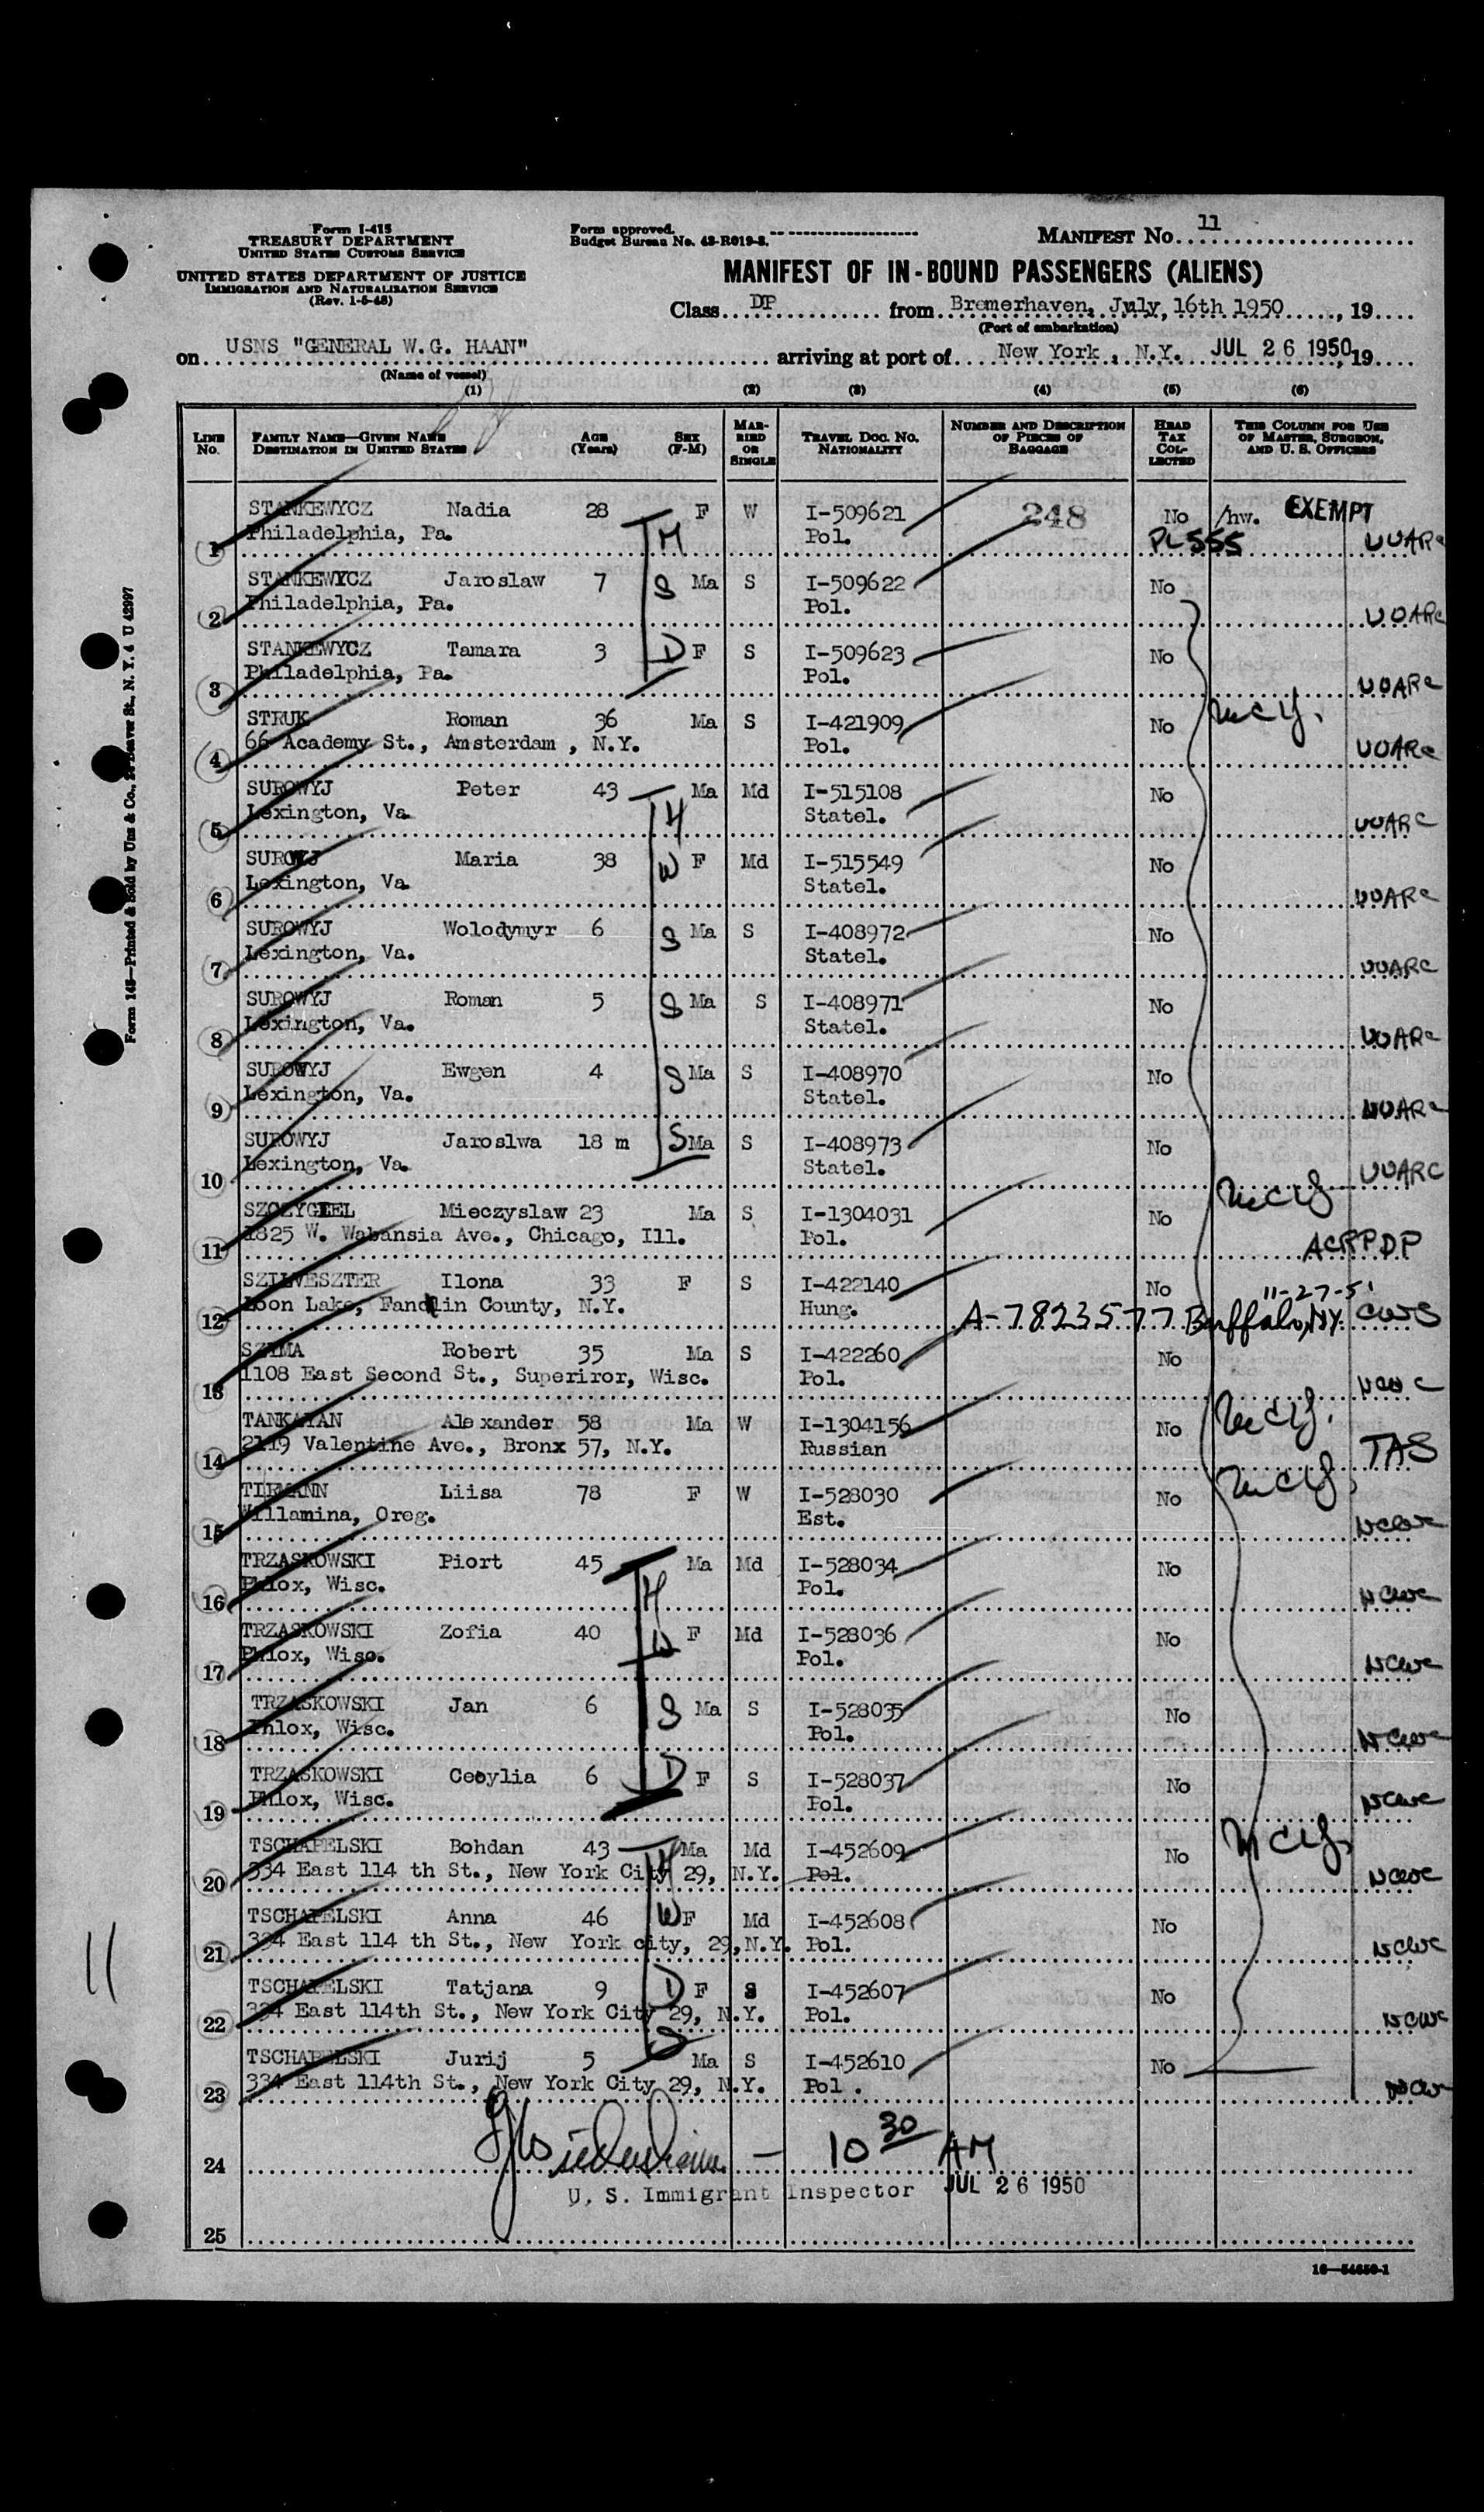 Form I-415
TREASURY DEPARTMENT
UNITED STATES CUSTOMS SERVICE
UNITED STATES DEPARTMENT OF JUSTICE
IMMIGRATION AND NATURALIZATION SERVICE
(Rev. 1-5-48)
Form approved.
Budget Bureau No. 43-R019-3.
MANIFEST No. 11
MANIFEST OF IN-BOUND PASSENGERS (ALIENS)
Class DP from Bremerhaven, July, 16th 1950, 19
(Port of embarkation)
on USNS "GENERAL W.G. HAAN" arriving at port of New York , N.Y. JUL 26 1950, 19
(Name of vessel)
(1) (2) (3) (4) (5) (6)
LINE No. FAMILY NAME—GIVEN NAME DESTINATION IN UNITED STATES AGE (Years) SEX (F-M) MARRIED OR SINGLE TRAVEL DOC. No. NATIONALITY NUMBER AND DESCRIPTION OF PIECES OF BAGGAGE HEAD TAX COLLECTED THIS COLUMN FOR USE OF MASTER, SURGEON, AND U. S. OFFICERS
STANKEWYCZ Nadia 28 F W I-509621 248 No /hw. EXEMPT
1 Philadelphia, Pa. M Pol. PL555 UUARC
STANKEWYCZ Jaroslaw 7 S Ma S I-509622 No
2 Philadelphia, Pa. Pol. UUARC
STANKEWYCZ Tamara 3 D F S I-509623 No
3 Philadelphia, Pa. Pol. UUARC
STRUK Roman 36 Ma S I-421909 No
4 66 Academy St., Amsterdam , N.Y. Pol. UUARC
SUROWYJ Peter 43 Ma Md I-515108 No
5 Lexington, Va. H Statel. UUARC
SUROWYJ Maria 38 W F Md I-515549 No
6 Lexington, Va. Statel. UUARC
SUROWYJ Wolodymyr 6 S Ma S I-408972 No
7 Lexington, Va. Statel. UUARC
SUROWYJ Roman 5 S Ma S I-408971 No
8 Lexington, Va. Statel. UUARC
SUROWYJ Ewgen 4 S Ma S I-408970 No
9 Lexington, Va. Statel. UUARC
SUROWYJ Jaroslwa 18 m S Ma S I-408973 No
10 Lexington, Va. Statel. UUARC
SZCZYGIEL Mieczyslaw 23 Ma S I-1304031 No
11 1825 W. Wabansia Ave., Chicago, Ill. Pol. ACRPDP
SZILVESZTER Ilona 33 F S I-422140 No 11-27-51
12 Loon Lake, Fandlin County, N.Y. Hung. A-7823577 Buffalo, NY. CWS
SZYMA Robert 35 Ma S I-422260 No
13 1108 East Second St., Superiror, Wisc. Pol. NCWC
TANKAYAN Alexander 58 Ma W I-1304156 No
14 2119 Valentine Ave., Bronx 57, N.Y. Russian TAS
TIRMANN Liisa 78 F W I-528030 No
15 Willamina, Oreg. Est. NCWC
TRZASKOWSKI Piort 45 Ma Md I-528034 No
16 Phlox, Wisc. H Pol. NCWC
TRZASKOWSKI Zofia 40 W F Md I-528036 No
17 Phlox, Wisc. Pol. NCWC
TRZASKOWSKI Jan 6 S Ma S I-528035 No
18 Phlox, Wisc. Pol. NCWC
TRZASKOWSKI Cecylia 6 D F S I-528037 No
19 Phlox, Wisc. Pol. NCWC
TSCHAPELSKI Bohdan 43 Ma Md I-452609 No
20 334 East 114 th St., New York City 29, N.Y. H Pol. NCWC
TSCHAPELSKI Anna 46 W F Md I-452608 No
21 334 East 114 th St., New York city, 29, N.Y. Pol. NCWC
TSCHAPELSKI Tatjana 9 D F S I-452607 No
22 334 East 114th St., New York City 29, N.Y. Pol. NCWC
TSCHAPELSKI Jurij 5 S Ma S I-452610 No
23 334 East 114th St., New York City 29, N.Y. Pol . NCW
24 — 10 30 AM
U. S. Immigrant Inspector JUL 26 1950
25
16—54650-1
Form 145—Printed & Sold by Unz & Co., 24 Beaver St., N. Y. 4 U 42997
11